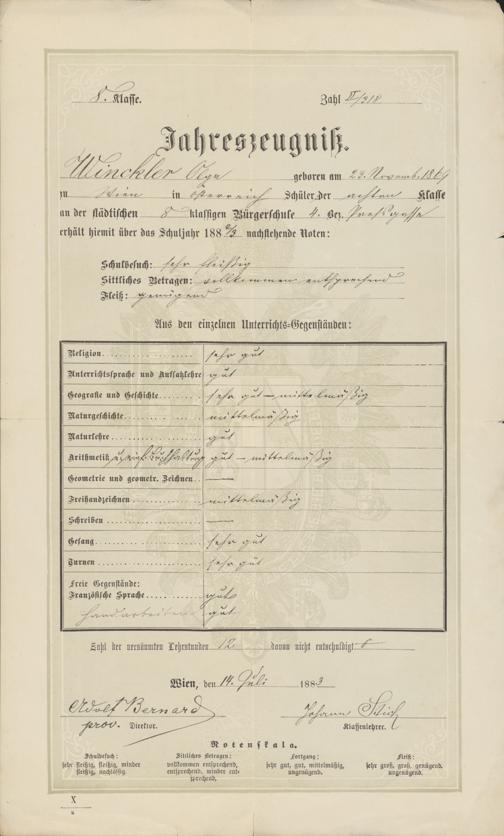 8. Klasse. Zahl II/318
Jahreszeugniß.
Winckler Olga geboren am 23. Novemb.
zu Wien in Österreich Schüler der achten Klasse
an der städtischen 8 klassigen Bürgerschule 4. Bez. Pressgasse
erhält hiemit über das Schuljahr 188 2/3 nachstehende Noten:
Schulbesuch: sehr fleißig
Sittliches Betragen: vollkommen entsprechend
Fleiß: genügend
Aus den einzelnen Unterrichts-Gegenständen:
Religion sehr gut
Unterrichtssprache und Aufsatzlehre gut
Geografie und Geschichte sehr gut – mittelmäßig
Naturgeschichte mittelmäßig
Naturlehre gut
Arithmetik u. einf. Buchhaltung gut – mittelmäßig
Geometrie und geometr. Zeichnen —
Freihandzeichnen mittelmäßig
Schreiben —
Gesang sehr gut
Turnen sehr gut
Freie Gegenstände:
Französische Sprache gut
Handarbeiten gut
Zahl der versäumten Lehrstunden 12 davon nicht entschuldigt
Wien, den 14. Juli 1883
Adolf Bernard Johann
prov. Director. Klassenlehrer.
Notenskala.
Schulbesuch: Sittliches Betragen: Fortgang: Fleiß:
sehr fleißig, fleißig, minder vollkommen entsprechend, sehr gut, gut, mittelmäßig, sehr groß, groß, genügend,
fleißig, nachlässig. entsprechend, minder ent- ungenügend. ungenügend.
sprechend.
X